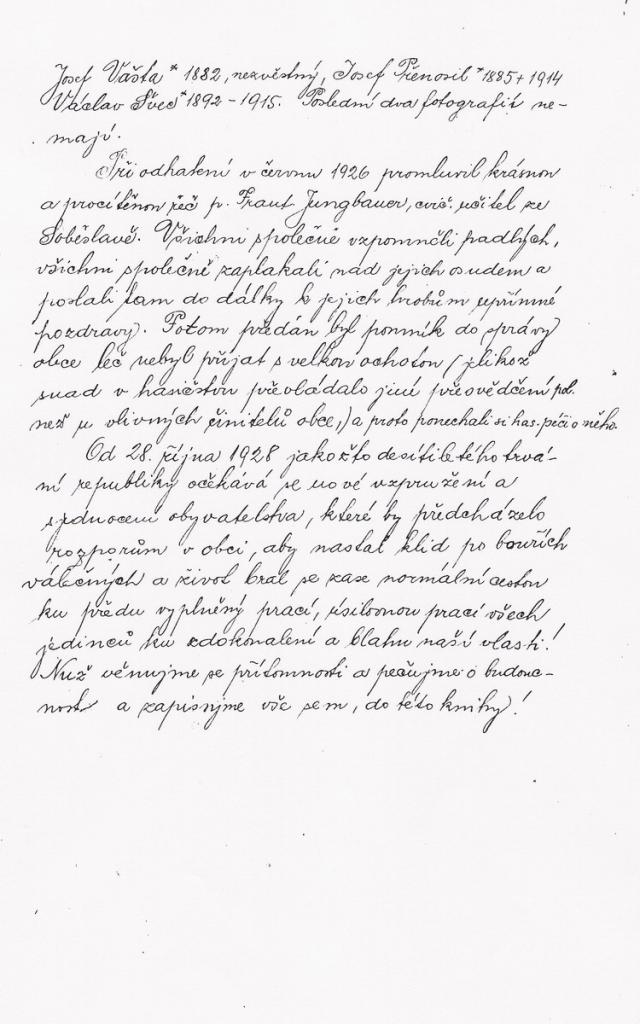 Josef Vášta * 1882, nezvěstný, Josef Přenosil * 1885 + 1914
Václav Švec * 1892 - 1915. Poslední dva fotografií ne-
mají.
Při odhalení v červnu 1926 promluvil krásnou
a procítěnou řeč p. Frant Jungbauer, cvič. učitel ze
Soběslavě. Všichni společně vzpomněli padlých,
všichni společně zaplakali nad jejich osudem a
poslali tam do dálky k jejich hrobům upřímné
pozdravy. Potom předán byl pomník do správy
obce leč nebyl přijat s velkou ochotou (jelikož
snad v hasičstvu převládalo jiné přesvědčení pol.
než u vlivných činitelů obce,) a proto ponechali si has. péči o něho.
Od 28. října 1928 jakožto desítiletého trvá-
ní republiky očekává se nové vzpružení a
sjednocení obyvatelstva, které by předcházelo
rozporům v obci, aby nastal klid po bouřích
válečných a život bral se zase normální cestou
ku předu vyplněný prací, úsilovnou prací všech
jedinců ku zdokonalení a blahu naší vlasti!
Nuž věnujme se přítomnosti a pečujme o budouc-
nost a zapisujme vše sem, do této knihy!